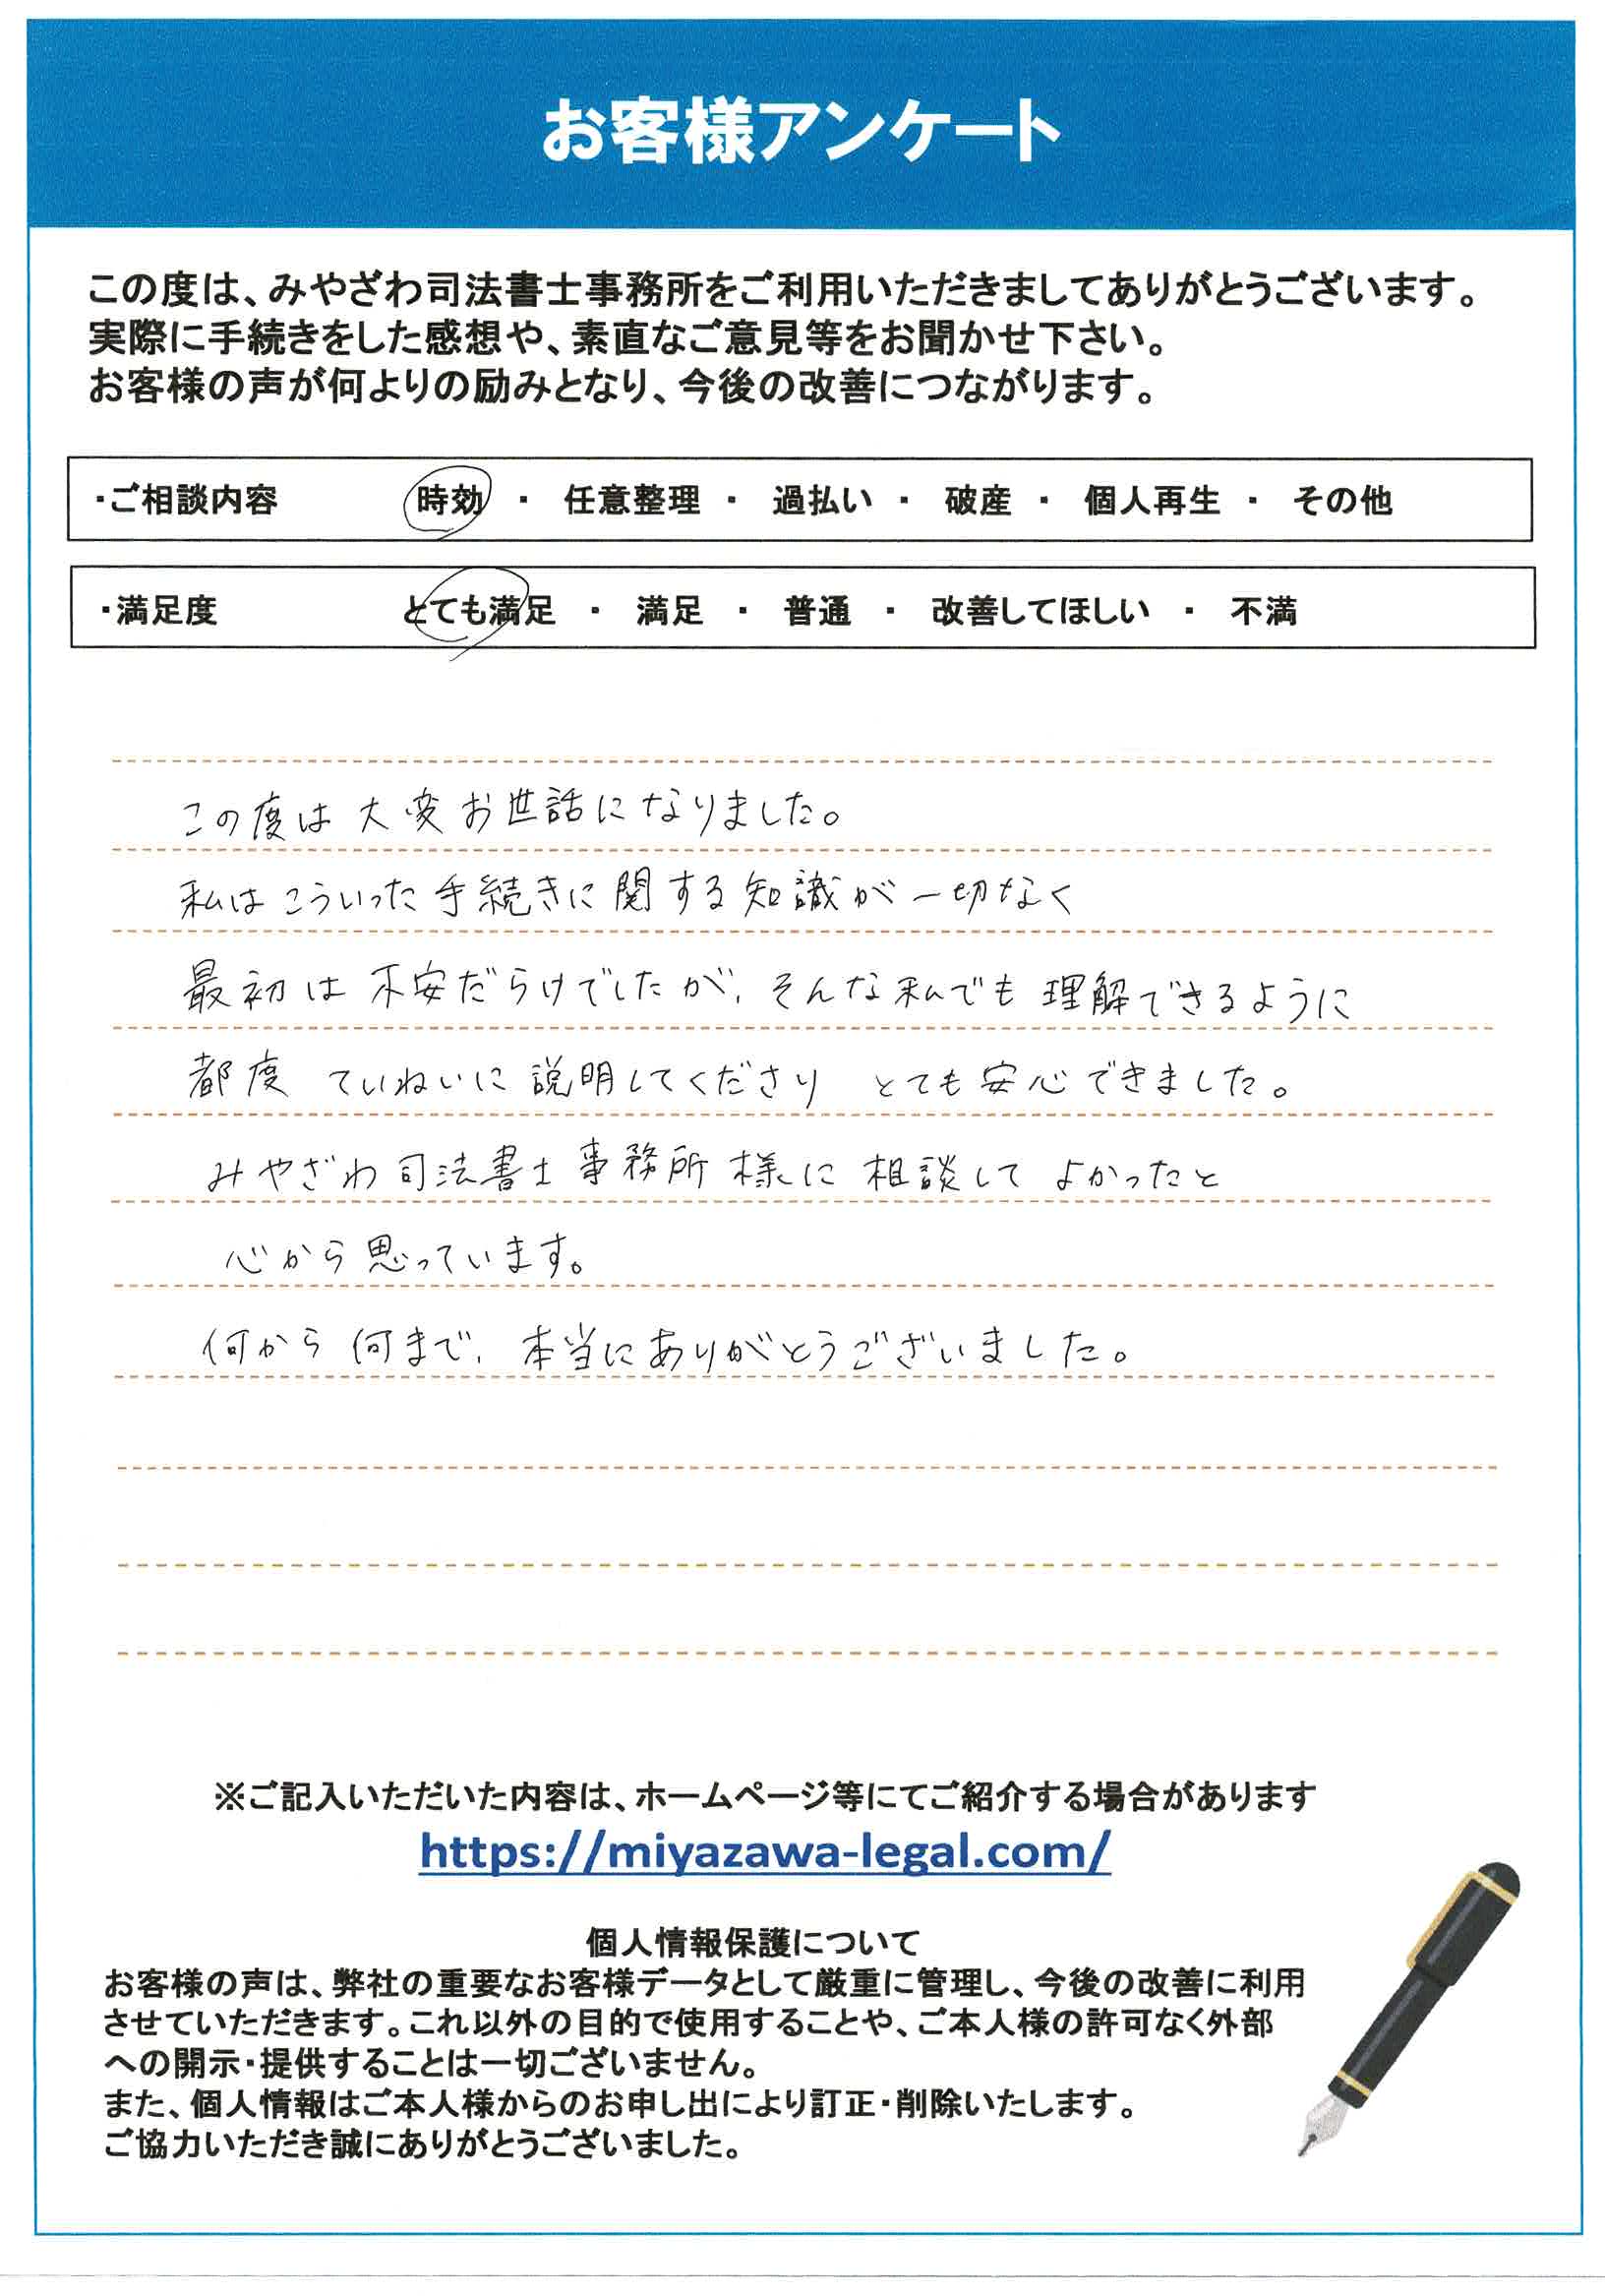 お客様アンケート
この度は、みやざわ司法書士事務所をご利用いただきましてありがとうございます。
実際に手続きをした感想や、素直なご意見等をお聞かせ下さい。
お客様の声が何よりの励みとなり、今後の改善につながります。
・ご相談内容 時効 ・ 任意整理 ・ 過払い ・ 破産 ・ 個人再生 ・ その他
・満足度 とても満足 ・ 満足 ・ 普通 ・ 改善してほしい ・ 不満
この度は大変お世話になりました。
私はこういった手続きに関する知識が一切なく
最初は不安だらけでしたが、そんな私でも理解できるように
都度 ていねいに説明してくださり とても安心できました。
みやざわ司法書士事務所様に相談してよかったと
心から思っています。
何から何まで、本当にありがとうございました。
※ご記入いただいた内容は、ホームページ等にてご紹介する場合があります
https://miyazawa-legal.com/
個人情報保護について
お客様の声は、弊社の重要なお客様データとして厳重に管理し、今後の改善に利用
させていただきます。これ以外の目的で使用することや、ご本人様の許可なく外部
への開示・提供することは一切ございません。
また、個人情報はご本人様からのお申し出により訂正・削除いたします。
ご協力いただき誠にありがとうございました。